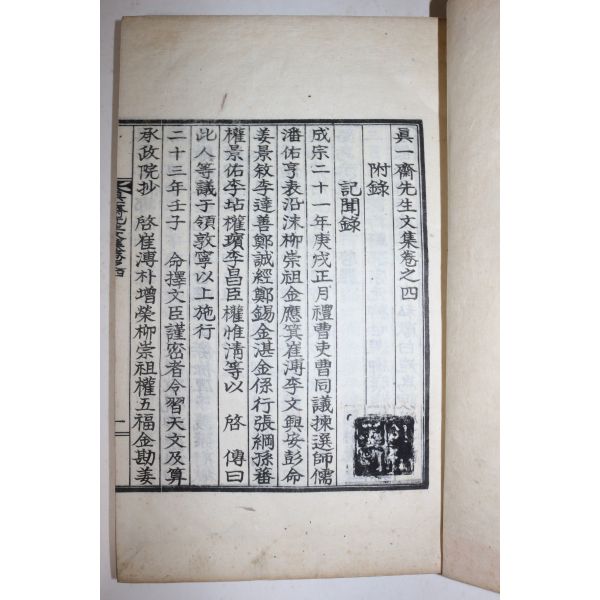 眞一齋先生文集卷之四
附錄
記聞錄
成宗二十一年庚戌正月禮曹吏曹同議揀選師儒
潘佑亨表沿沫柳崇祖金應箕崔溥李文興安彭命
姜景敘李達善鄭誠經鄭錫金湛金係行張綱孫蕃
權景佑李坫權瓆李昌臣權惟淸等以 啓 傳曰
此人等議于領敦寧以上施行
二十三年壬子 命擇文臣謹密者令習天文及算
承政院抄 啓崔溥朴增榮柳崇祖權五福金勘姜